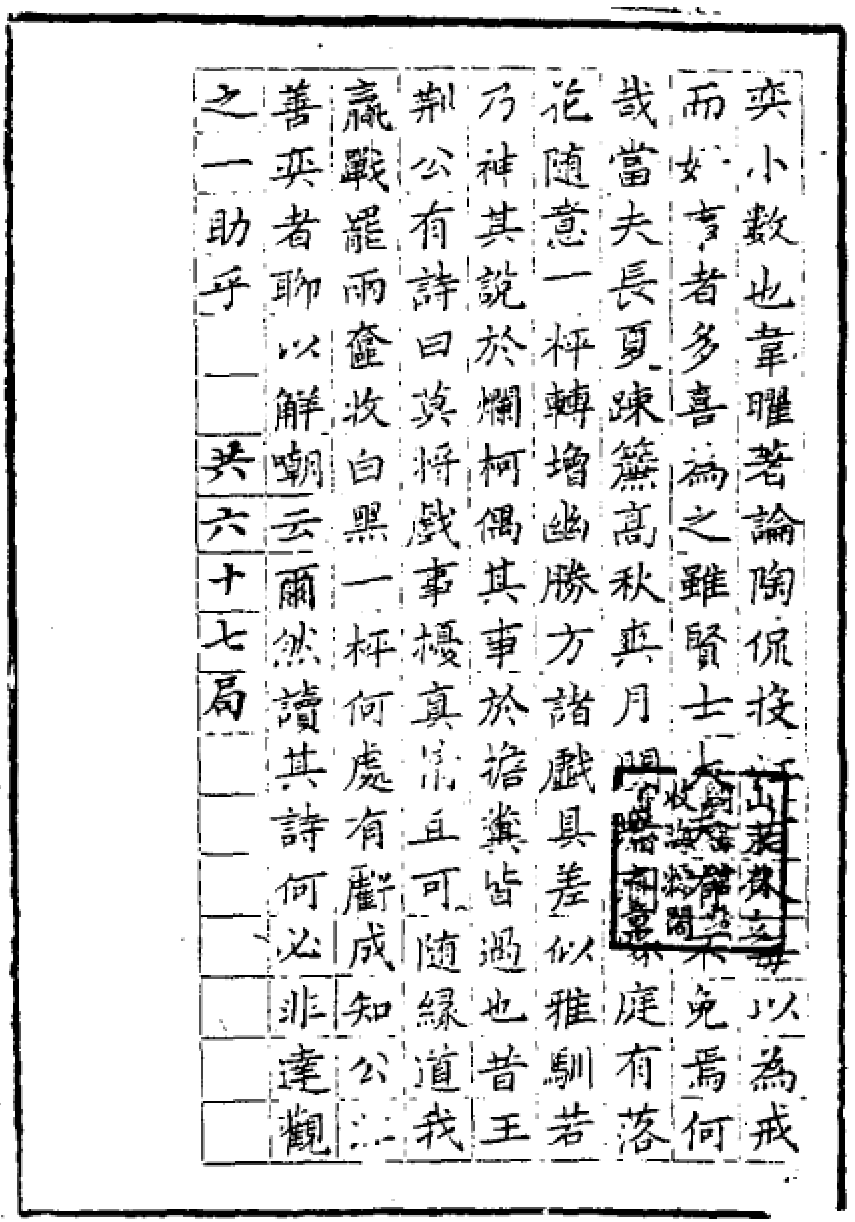 奕小數也韋曜著論陶侃投江古人每以為戒
而妙亨者多喜為之雖賢士大夫諸公不免焉何
哉當夫長夏疎簾高秋爽月閒庭有落
花隨意一枰轉增幽勝方諸戲具差似雅馴若
乃神其說於爛柯偶其事於擔糞皆過也昔王
荆公有詩曰莫將戲事擾真情且可隨緣道我
贏戰罷兩奩收白黑一枰何處有虧成知公亦
善奕者聊以解嘲云爾然讀其詩何必非達觀
之一助乎
共六十七局